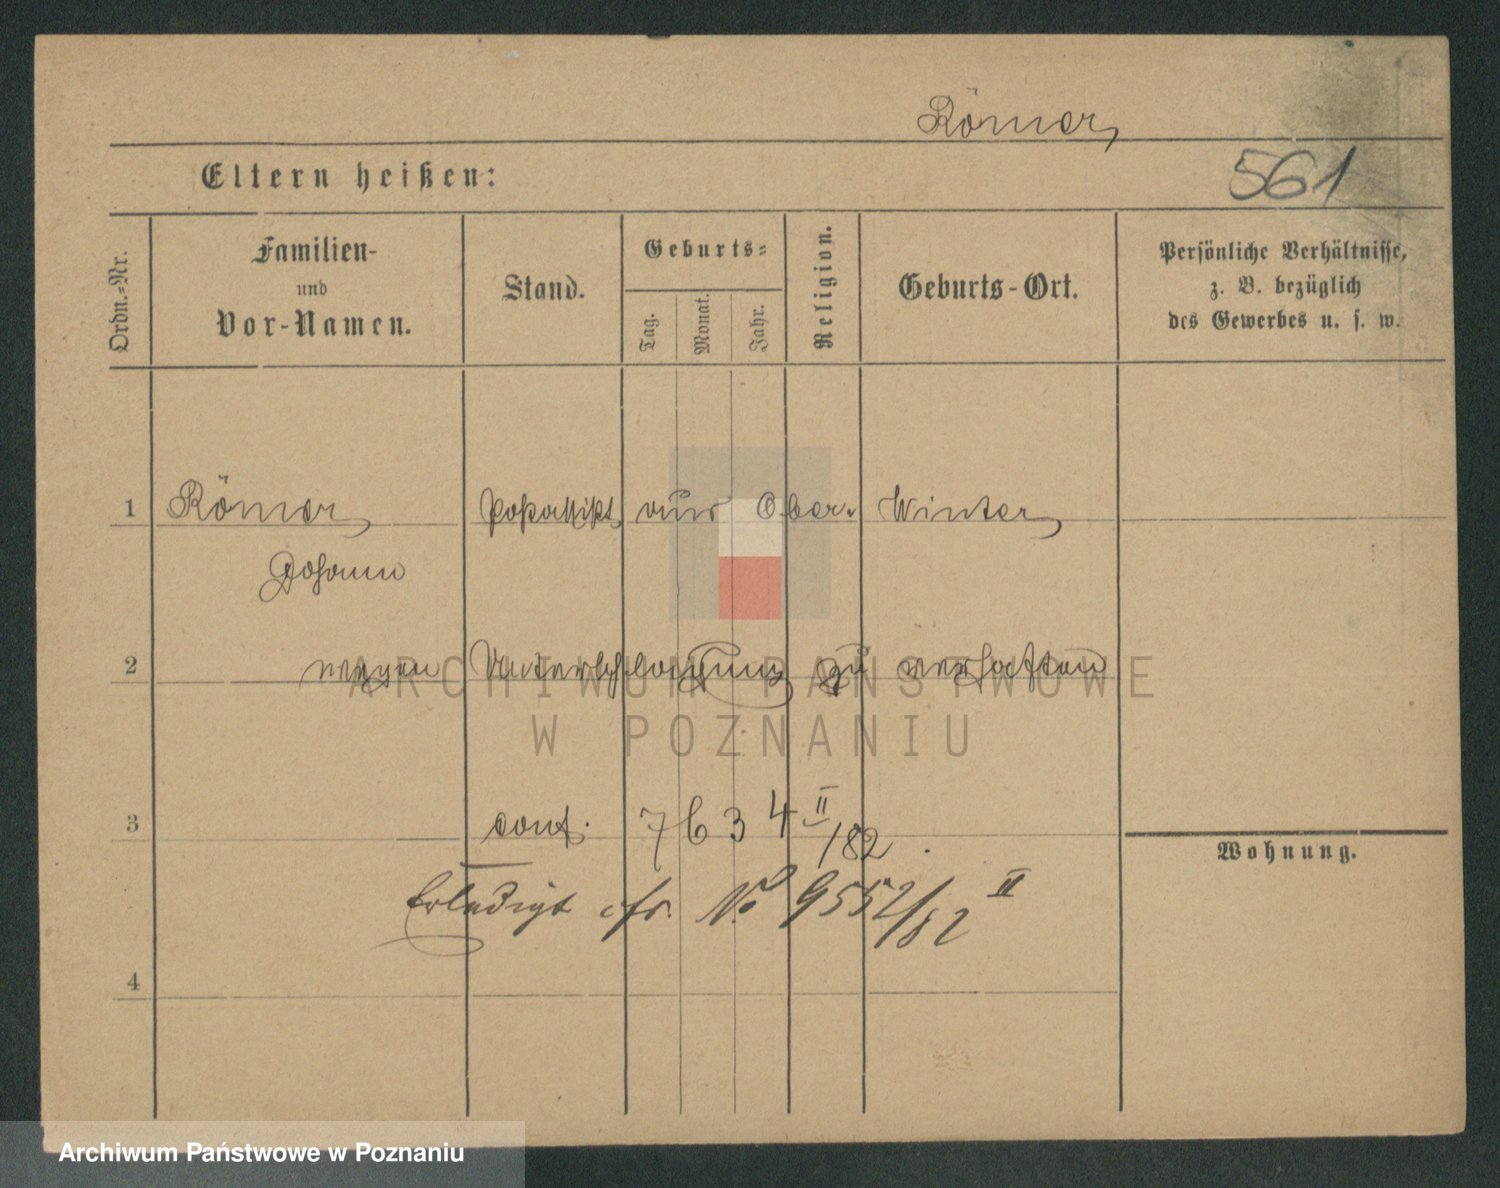 Römer,
561
Eltern heißen:
Ordn.-Nr.
Familien-
und
Vor-Namen.
Stand.
Geburts-
Tag.
Monat.
Jahr.
Religion.
Geburts-Ort.
Persönliche Verhältnisse,
z. B. bezüglich
des Gewerbes u. s. w.
1 Römer, aus Ober-Winter,
Johann
2 wegen Unterschlagung zu verhaften
3 cont. 7634 II/82.
Erledigt cfr. No 9552/82 II
4
Wohnung.
ARCHIWUM PAŃSTWOWE
W POZNANIU
Archiwum Państwowe w Poznaniu